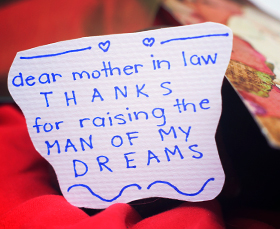 dear mother in law
THANKS
for raising the
MAN OF MY
DREAMS